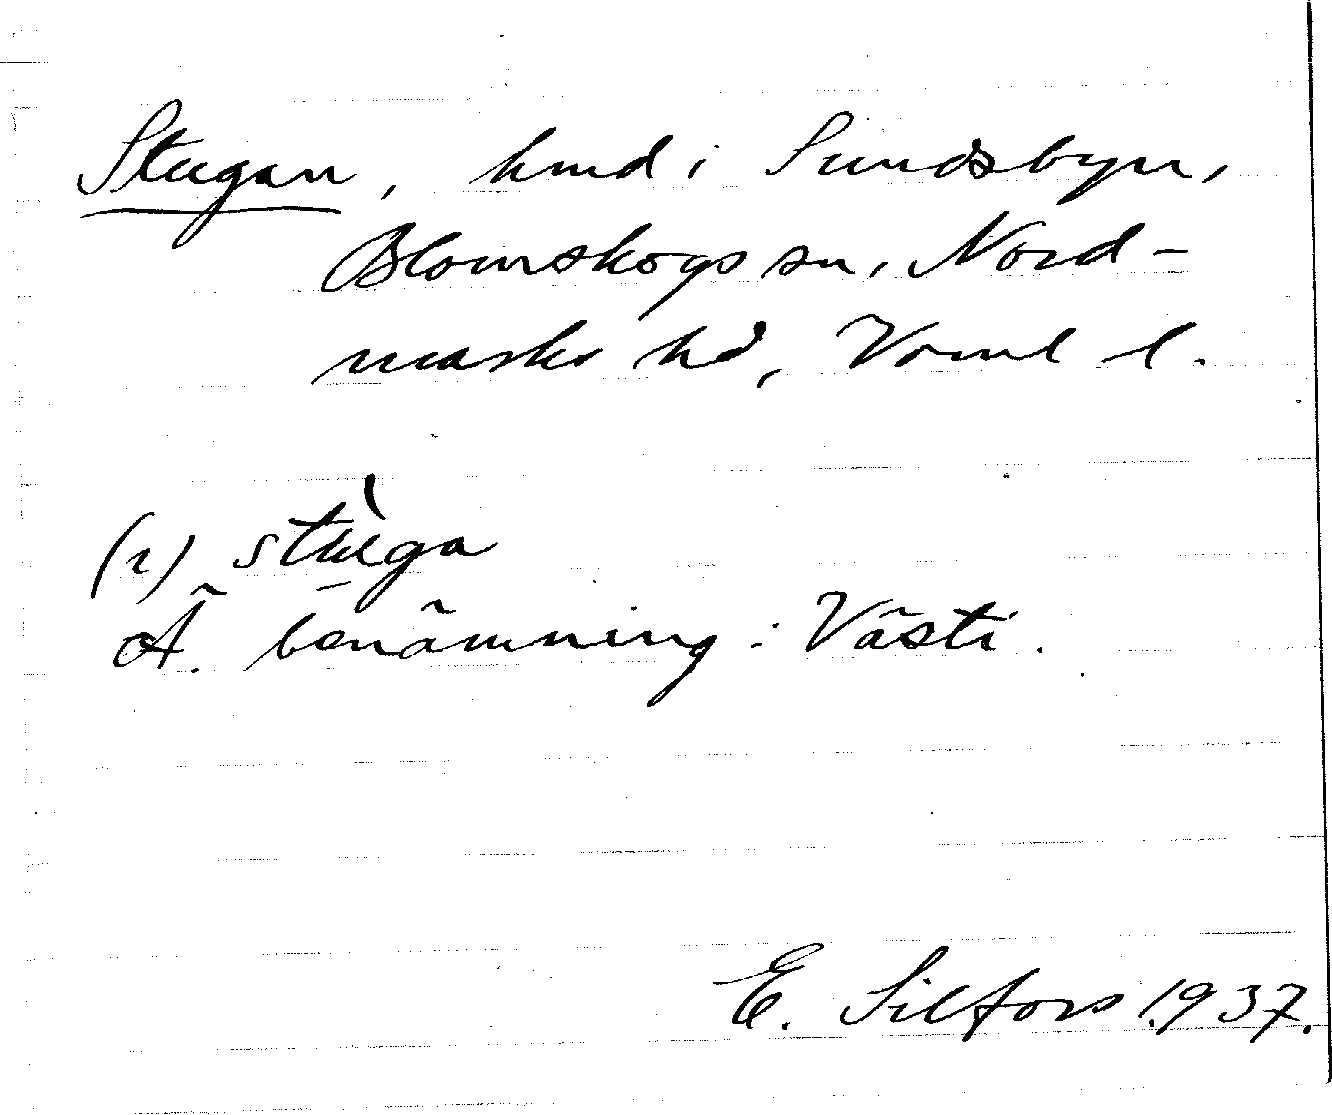 Stugan, hmd i Sundsbyn,
Blomskogs sn, Nord-
marks hd, Värml l.
(i) stùga
Ä. benämning: Västi.
E. Silfors 1937.